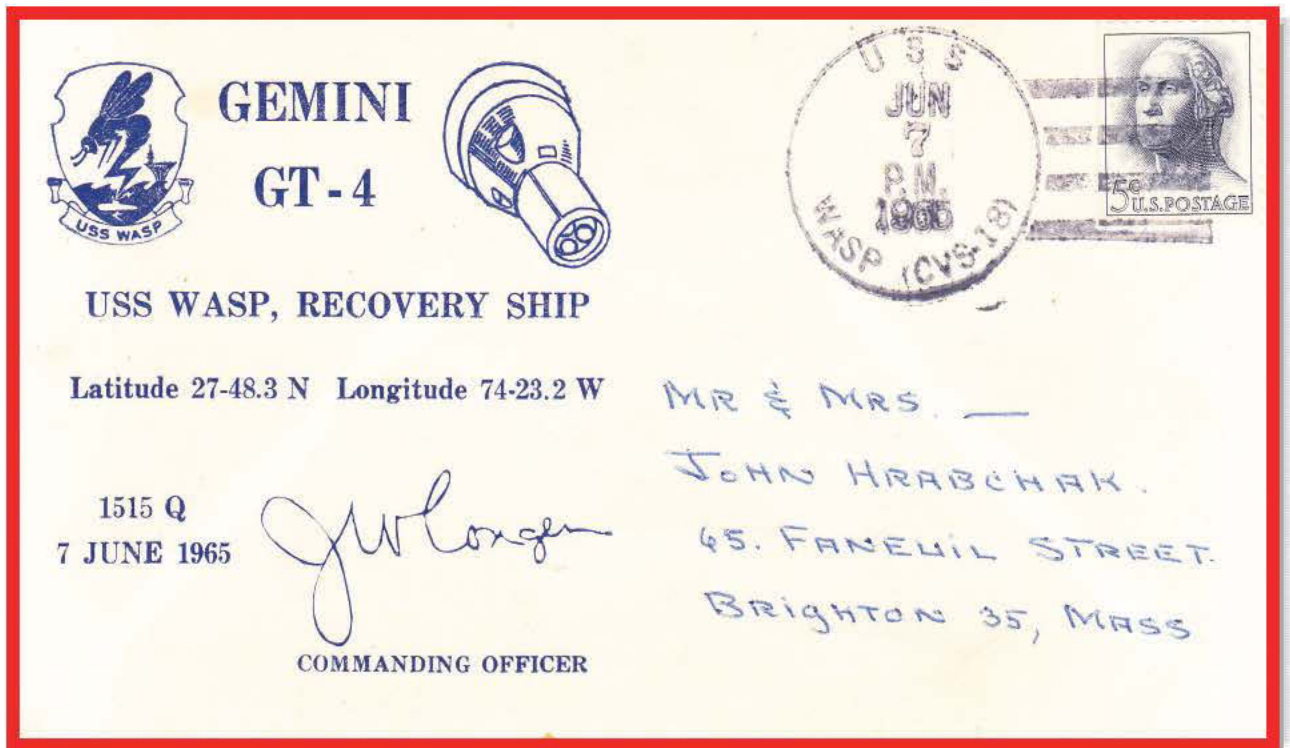 GEMINI
GT-4
USS WASP
USS WASP, RECOVERY SHIP
Latitude 27-48.3 N Longitude 74-23.2 W
1515 Q
7 JUNE 1965
COMMANDING OFFICER
USS
JUN
7
P.M.
1965
WASP (CVS-18)
5c U.S. POSTAGE
MR & MRS. —
JOHN HRABCHAK.
65. FANEUIL STREET.
BRIGHTON 35, MASS